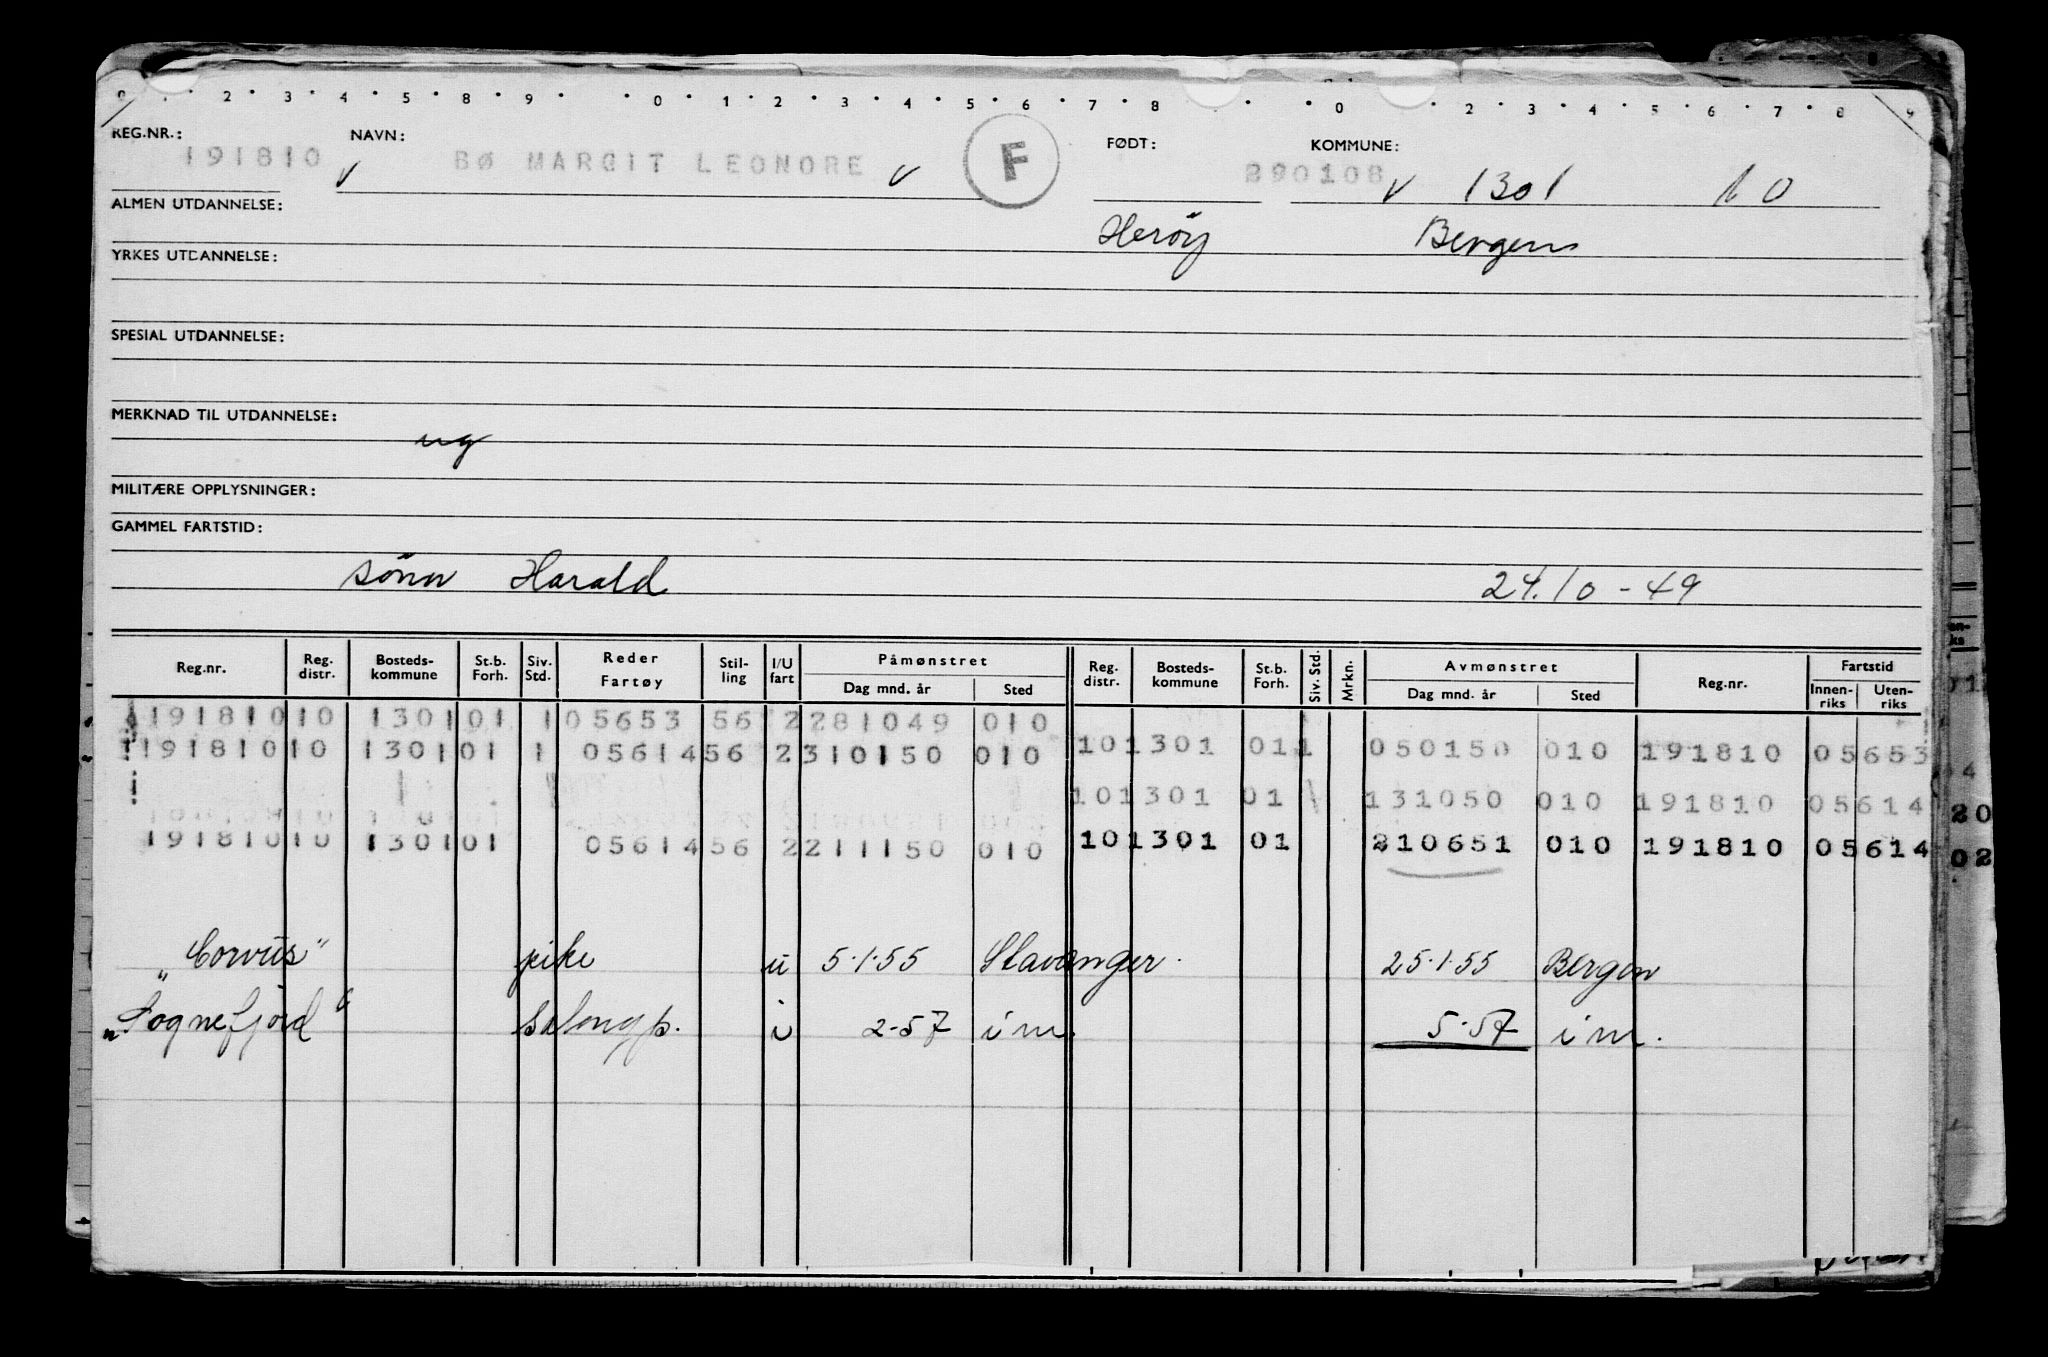 2 3 4 5 8 9 0 1 2 3 4 5 6 7 8 0 2 3 4 5 6 7 8 9
REG.NR.: NAVN: FØDT: KOMMUNE:
191810 V BØ MARGIT LEONORE V F 290108 V 1301 10
ALMEN UTDANNELSE: Herøy Bergen
YRKES UTDANNELSE:
SPESIAL UTDANNELSE:
MERKNAD TIL UTDANNELSE:
ug
MILITÆRE OPPLYSNINGER:
GAMMEL FARTSTID:
sönn Harald 24.10-49
Reg.nr. Reg. distr. Bosteds-kommune St.b. Forh. Siv. Std. Reder Fartøy Stil-ling I/U fart Påmønstret Dag mnd. år Sted Reg. distr. Bosteds-kommune St.b. Forh. Siv. Std. Mrkn. Avmønstret Dag mnd. år Sted Reg.nr. Fartstid Innen-riks Uten-riks
191810 10 1301 01 1 05653 56 2 281049 010
191810 10 1301 01 1 05614 56 2 310150 010 10 1301 01 1 050150 010 191810 05653
10 1301 01 131050 010 191810 05614
191810 10 1301 01 05614 56 2 211150 010 10 1301 01 210651 010 191810 05614
"Corvus" pike u 5.1.55 Stavanger 25.1.55 Bergen
"Sognefjord" salongp. i 2-57 i m. 5.57 i m.